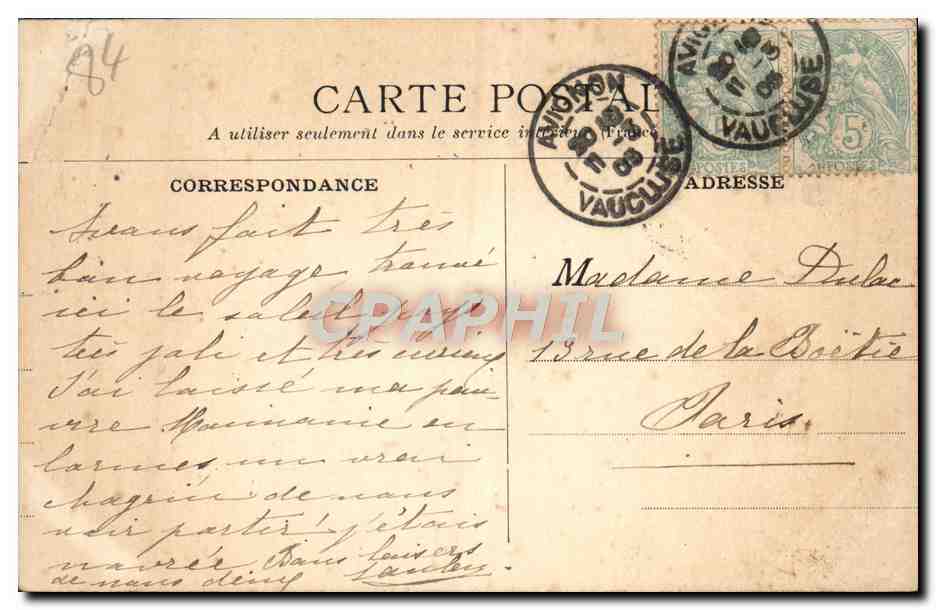 84
CARTE POSTALE
A utiliser seulement dans le service intérieur (France
CORRESPONDANCE
ADRESSE
AVIGNON
VAUCLUSE
AVIGNON
VAUCLUSE
5c
POSTES
Avons fait très
bon voyage trouvé
ici le soleil
très joli et très curieux
J'ai laissé ma pau-
vre Mamame en
larmes, un vrai
chagrin de nous
voir partir! j'étais
navrée. Bons baisers
de nous deux
Madame Dulac
13 rue de la Boëtie
Paris.
CPAPHIL